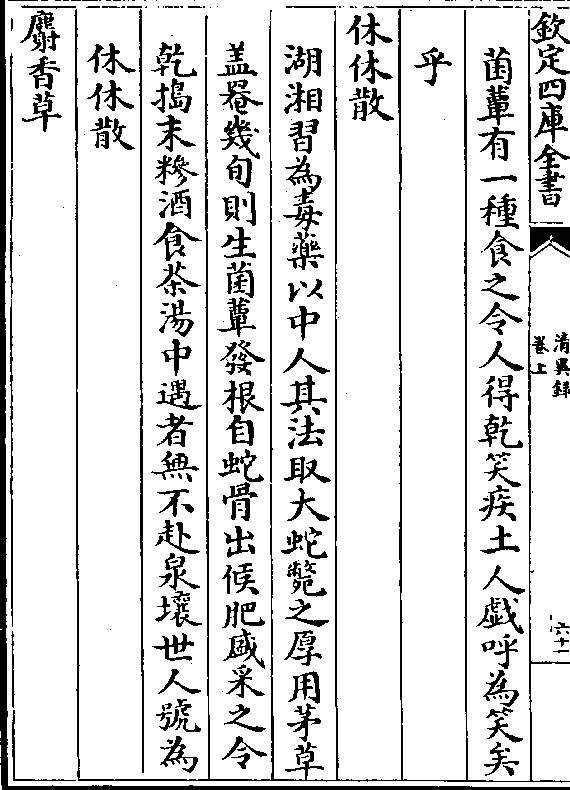 欽定四庫全書
清異錄
卷上
六十一
菌蕈有一種食之令人得乾笑疾土人戲呼為笑矣
乎
休休散
湖湘習為毒藥以中人其法取大蛇斃之厚用茅草
盖罨幾旬則生菌蕈發根自蛇骨出候肥盛采之令
乾搗末糝酒食茶湯中遇者無不赴泉壤世人號為
休休散
麝香草